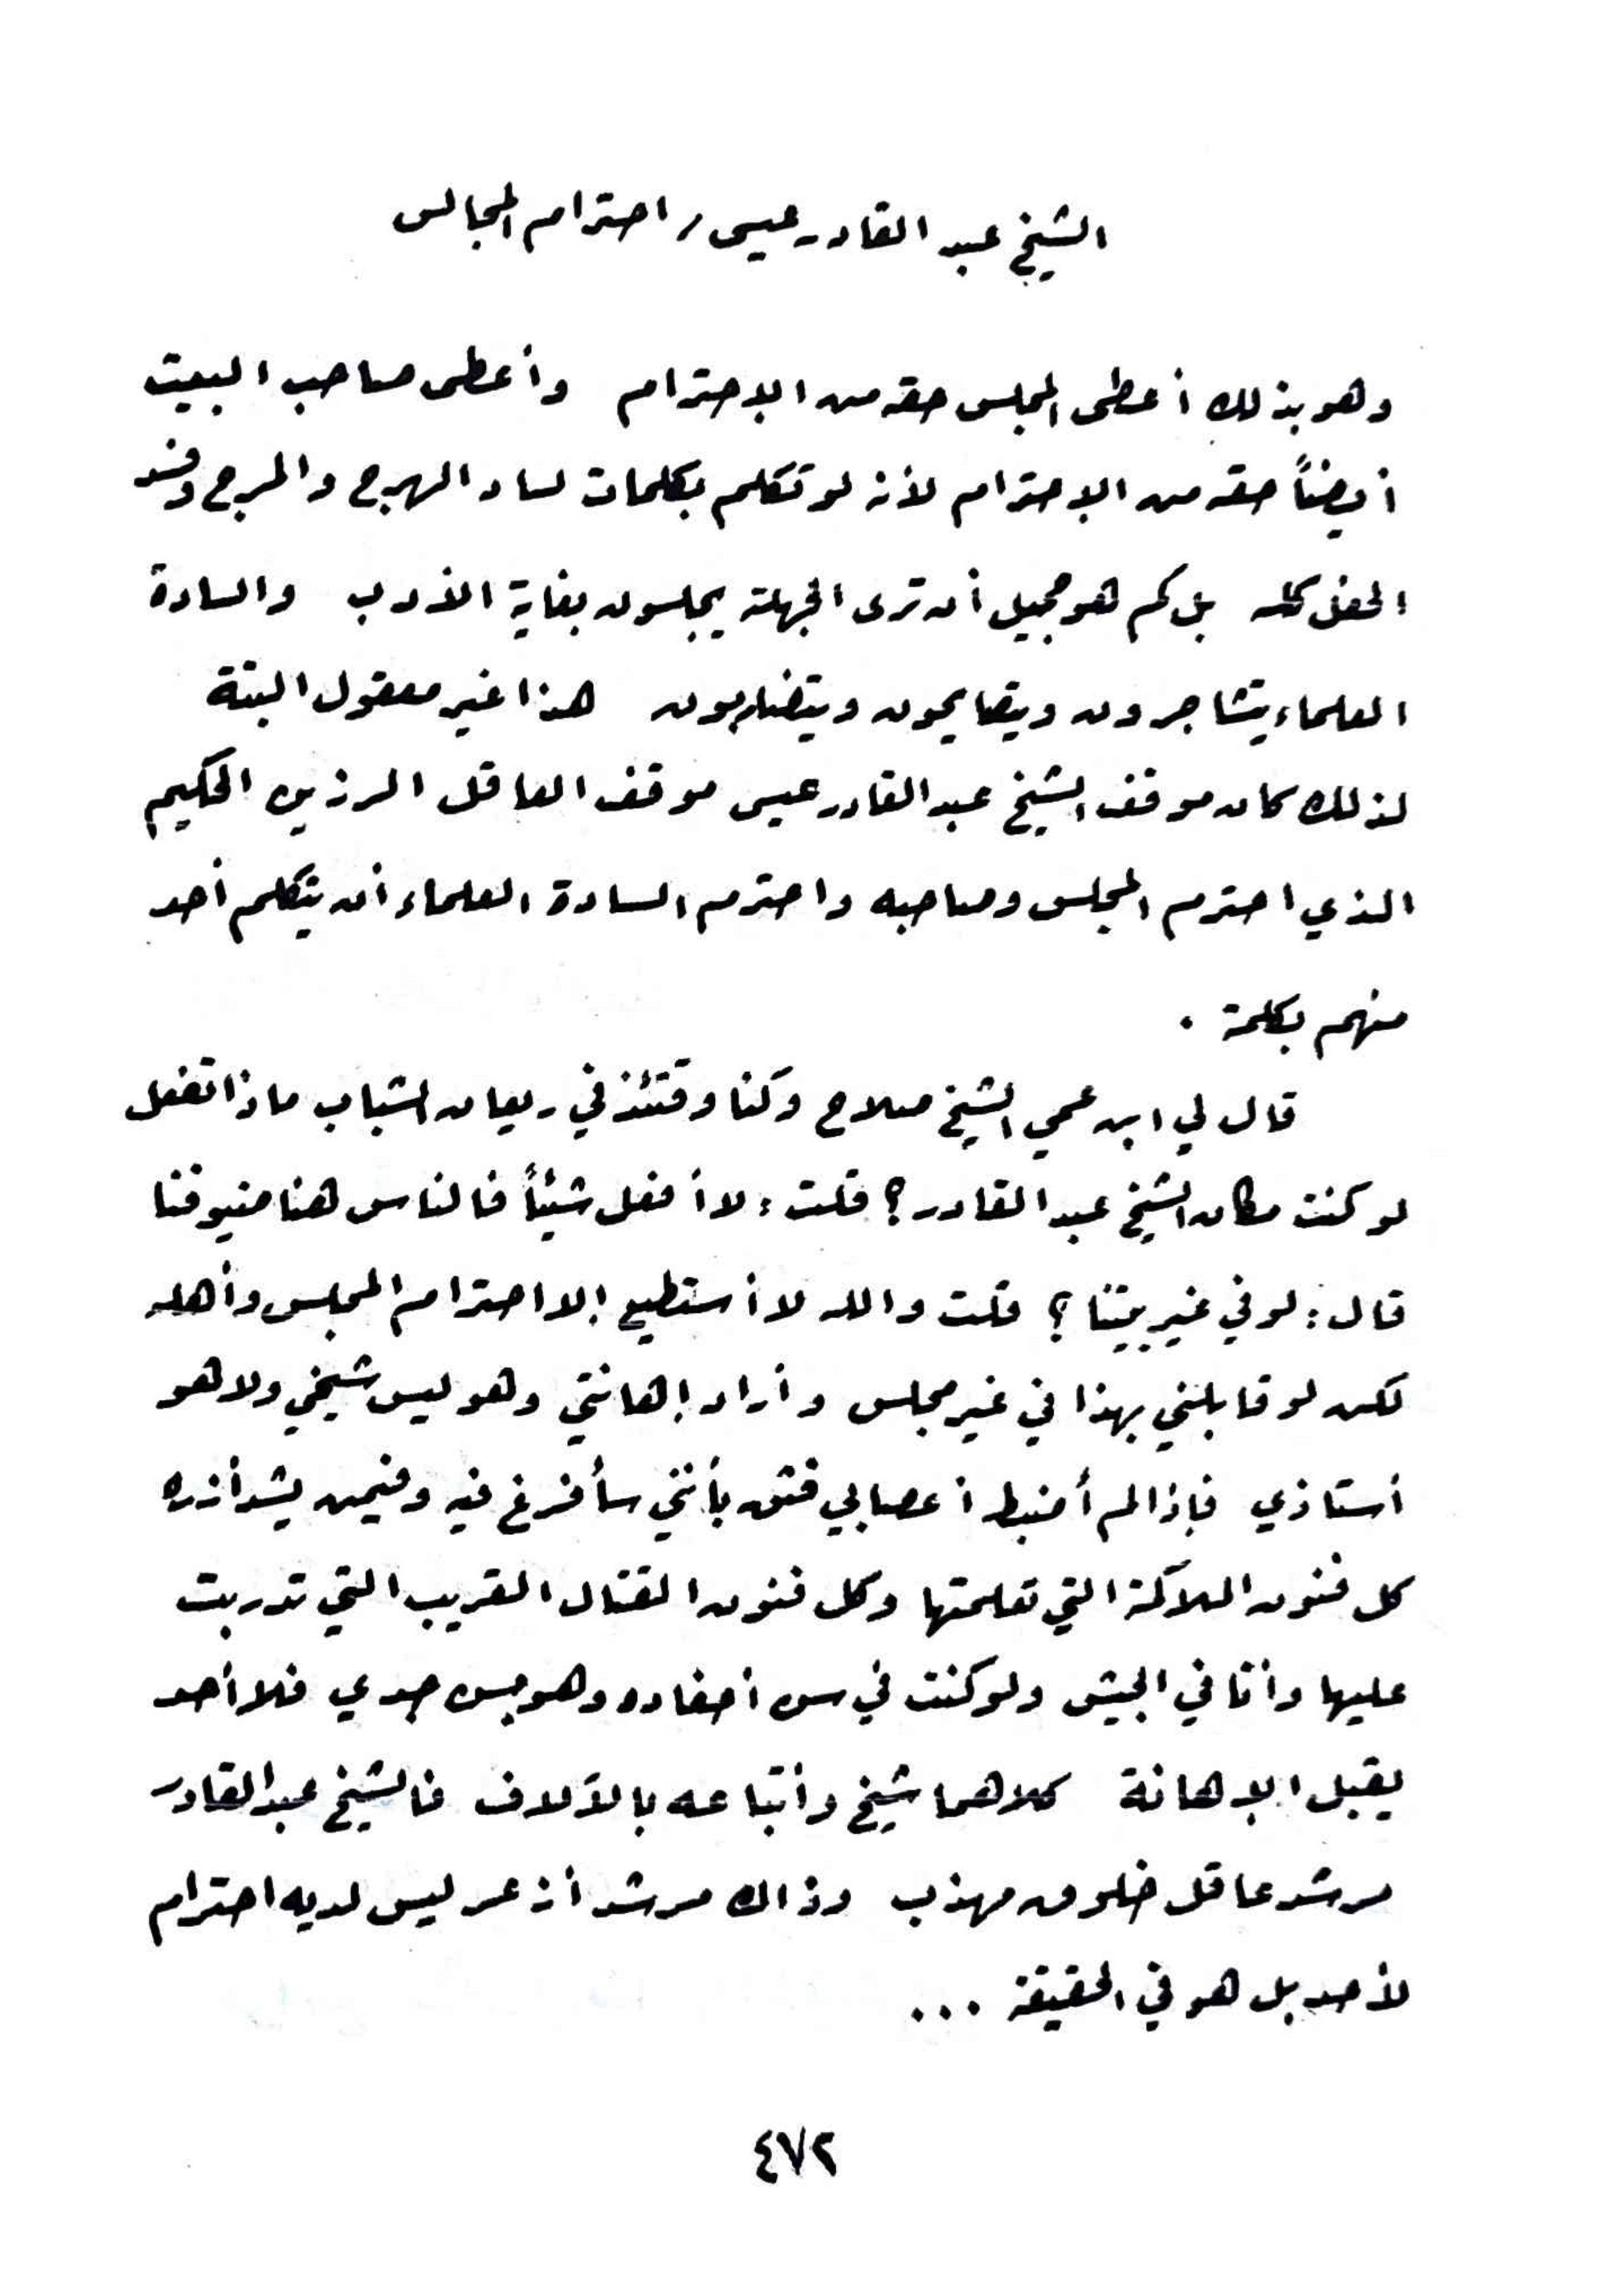 الشيخ عبد القادر عيسى / احترام المجالس
وهو بذلك أعطى المجلس حقه من الاحترام وأعطى صاحب البيت
أيضاً حقه من الاحترام لأنه لو تكلم بكلمات لساد الهرج والمرج وفسد
الحفل كله بل كم هو جميل أن ترى الجهلة يجلسون بغاية الأدب والسادة
العلماء يتشاجرون ويتصايحون ويتضاربون هذا غير معقول البتة
لذلك كان موقف الشيخ عبد القادر عيسى موقف العاقل الرزين الحكيم
الذي احترم المجلس وصاحبه واحترم السادة العلماء أن يتكلم أحد
منهم بكلمة .
قال لي ابن عمي الشيخ صلاح وكنا وقتئذ في ريعان الشباب ماذا تفعل
لو كنت مكان الشيخ عبد القادر؟ قلت : لا أفعل شيئاً فالناس هنا ضيوفنا
قال : لو في غير بيتنا ؟ قلت والله لا أستطيع إلا احترام المجلس وأهله
لكن لو قابلني بهذا في غير مجلس وأراد إهانتي وهو ليس شيخي ولا هو
أستاذي فإذا لم أضبط أعصابي فثق بأنني سأفرغ فيه وفيمن يشد أزره
كل فنون الملاكمة التي تعلمتها وكل فنون القتال القريب التي تدربت
عليها وأنا في الجيش ولو كنت في سن أحفاده وهو بسن جدي فلا أحد
يقبل الإهانة كلاهما شيخ وأتباعه بالآلاف فالشيخ عبد القادر
مرشد عاقل خلوق مهذب وذاك مرشد أزعر ليس لديه احترام
لأحد بل هو في الحقيقة ...
٤٧٢